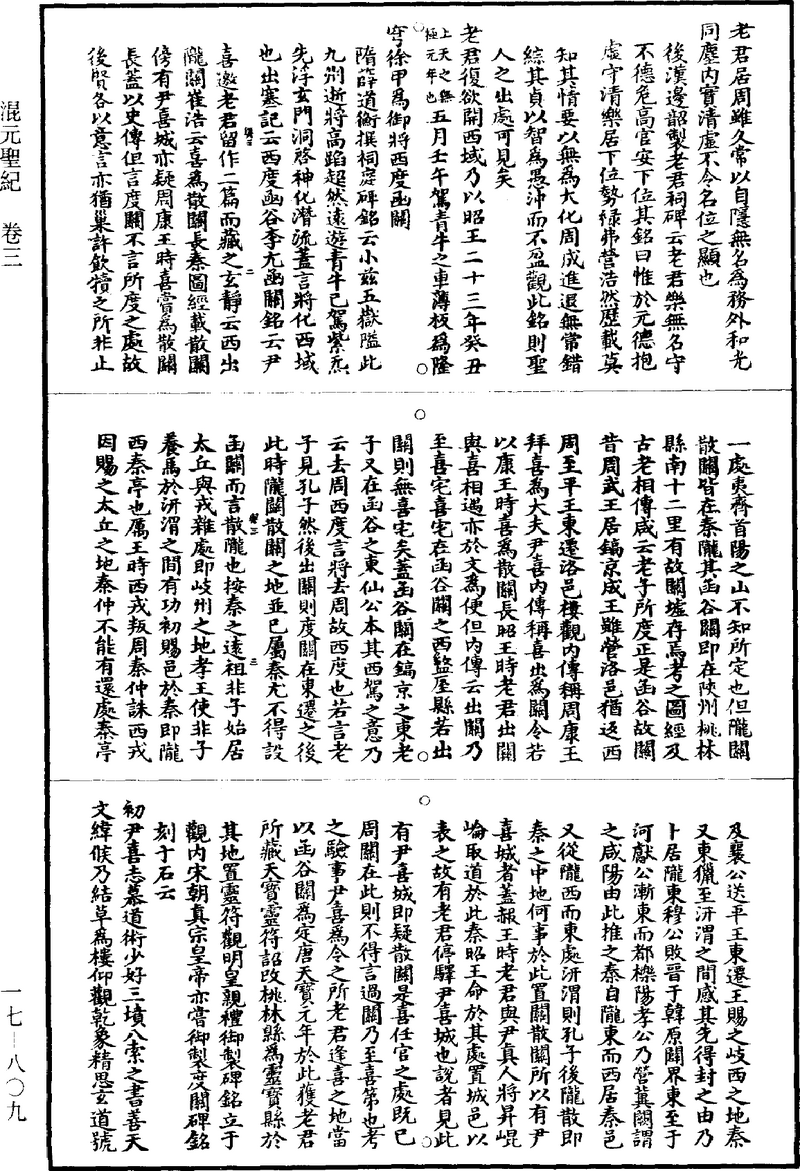 混元聖紀　卷三
一七—八〇九
老君居周雖久常以自隱無名爲務外和光
同塵内實清虛不令名位之顯也
後漢邊韶製老君祠碑云老君樂無名守
不德危高官安下位其銘曰惟於元德抱
虛守清樂居下位勢祿弗營浩然歷載莫
知其情要以無爲大化周成進退無常錯
綜其貞以智爲愚沖而不盈觀此銘則聖
人之出處可見矣
老君復欲開西域乃以昭王二十三年癸丑
上天之無極元年也五月壬午駕青牛之車薄板爲隆
穹徐甲爲御將西度函關
隋薛道衡撰祠庭碑銘云小兹五嶽隘此
九州逝將高蹈超然遠遊青牛已駕紫炁
先浮玄門洞啓神化潛流蓋言將化西域
也出塞記云西度函谷李尤函關銘云尹
喜邀老君留作二篇而藏之玄靜云西出
隴關崔浩云喜爲散關長秦圖經載散關
傍有尹喜城亦疑周康王時喜嘗爲散關
長蓋以史傳但言度關不言所度之處故
後賢各以意言亦猶巢許飲犢之所非止
一處夷齊首陽之山不知所定也但隴關
散關皆在秦隴其函谷關即在陝州桃林
縣南十二里有故關墟存焉考之圖經及
古老相傳咸云老子所度正是函谷故關
昔周武王居鎬京成王雖營洛邑猶返西
周至平王東遷洛邑樓觀内傳稱周康王
拜喜爲大夫尹喜内傳稱喜出爲關令若
以康王時喜爲散關長昭王時老君出關
與喜相遇亦於文爲便但内傳云出關乃
至喜宅喜宅在函谷關之西盩厔縣若出
關則無喜宅矣蓋函谷關在鎬京之東老
子又在函谷之東仙公本其西駕之意乃
云去周西度言將去周故西度也若言老
子見孔子然後出關則度關在東遷之後
此時隴關散關之地並已屬秦尤不得設
函關而言散隴也按秦之遠祖非子始居
太丘與戎雜處即岐州之地孝王使非子
養馬於汧渭之間有功初賜邑於秦即隴
西秦亭也厲王時西戎叛周秦仲誅西戎
因賜之太丘之地秦仲不能有還處秦亭
及襄公送平王東遷王賜之岐西之地秦
又東獵至汧渭之間感其先得封之由乃
卜居隴東穆公敗晉于韓原關界東至于
河獻公漸東而都櫟陽孝公乃營冀闕謂
之咸陽由此推之秦自隴東而西居秦邑
又從隴西而東處汧渭則孔子後隴散即
秦之中地何事於此置關散關所以有尹
喜城者蓋赧王時老君與尹真人將昇崐
崘取道於此秦昭王命於其處置城邑以
表之故有老君停驛尹喜城也說者見此
有尹喜城即疑散關是喜任官之處既已
周關在此則不得言過關乃至喜第也考
之驗事尹喜爲令之所老君逢喜之地當
以函谷關爲定唐天寶元年於此獲老君
所藏天寶靈符詔改桃林縣爲靈寶縣於
其地置靈符觀明皇親禮御製碑銘立于
觀内宋朝真宗皇帝亦嘗御製度關碑銘
刻于石云
初尹喜志慕道術少好三墳八索之書善天
文緯候乃結草爲樓仰觀乾象精思玄道號